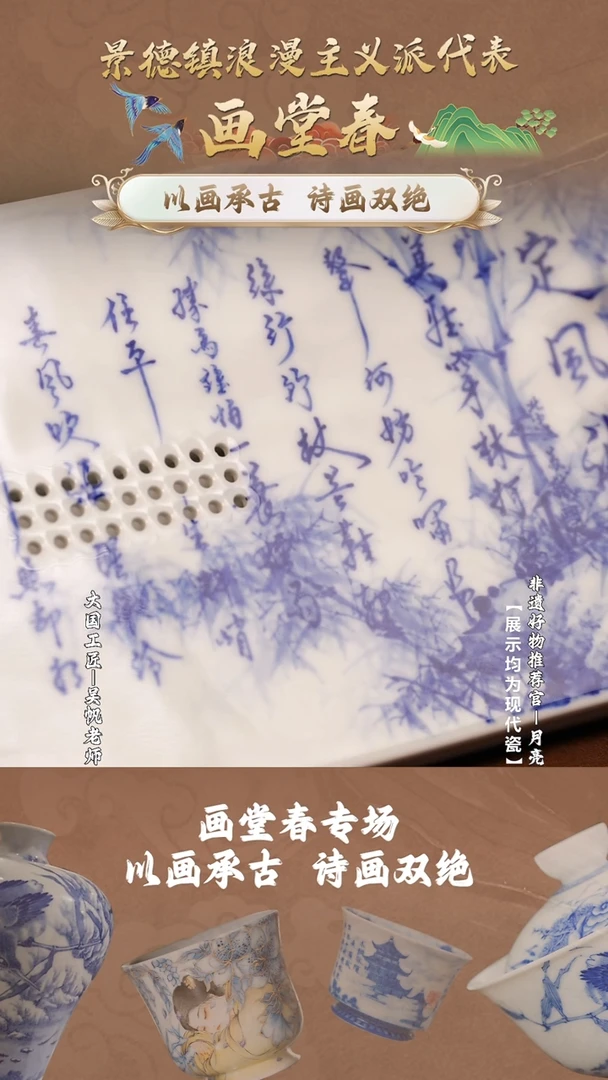 景德镇浪漫主义派代表
画堂春
以画承古 诗画双绝
定风
莫聽穿林打
聲何妨吟嘯且
徐行竹杖芒鞋
勝馬誰怕一蓑
任平
春風吹
非遗好物推荐官—月亮
【展示均为现代瓷】
大国工匠—吴悦老师
画堂春专场
以画承古 诗画双绝